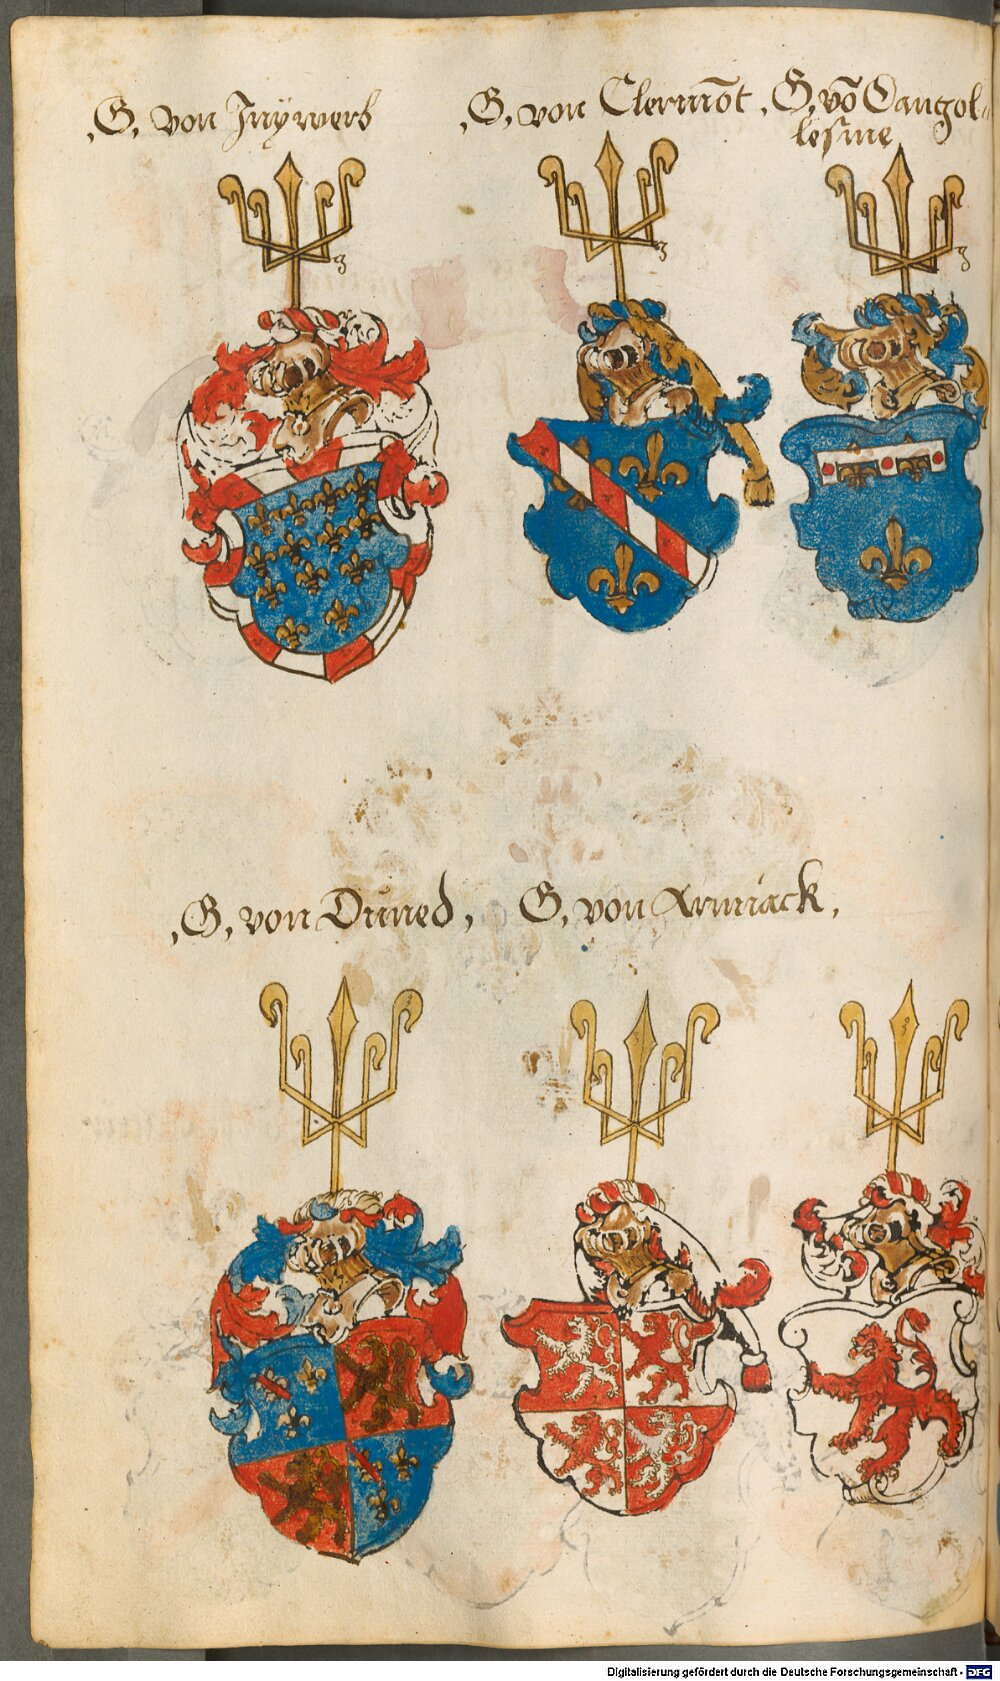 ,G, von Jnÿwers
,G, von Clermōt
,G, vō Dangol=
lesme,
3
3
3
,G, von Duned,
G, von Armiack,
Digitalisierung gefördert durch die Deutsche Forschungsgemeinschaft - DFG